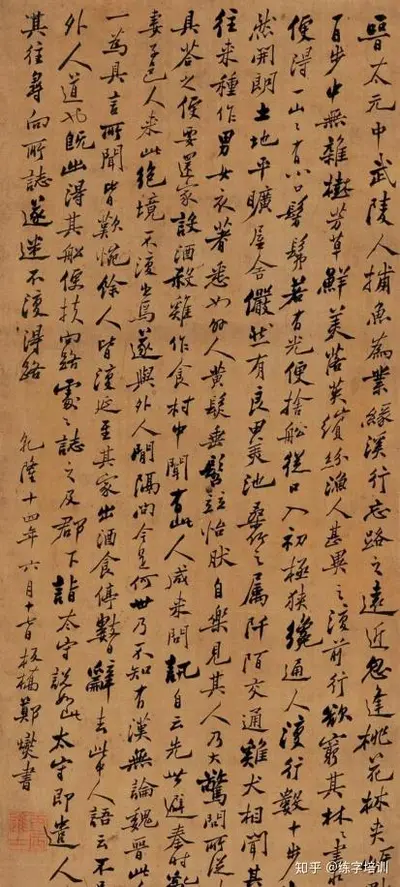 晉太元中武陵人捕魚為業緣溪行忘路之遠近忽逢桃花林夾岸
百步中無雜樹芳草鮮美落英繽紛漁人甚異之復前行欲窮其林〻盡水
便得一山〻有小口髣髴若有光便捨船從口入初極狹纔通人復行數十步
然開朗土地平曠屋舍儼然有良田美池桑竹之属阡陌交通雞犬相聞其
往來種作男女衣著悉如外人黃髮垂髫竝怡然自樂見其人乃大驚問所從
具答之便要還家設酒殺雞作食村中聞有此人咸來問訊自云先世避秦時亂
妻子邑人來此絕境不復出焉遂與外人間隔問今是何世乃不知有漢無論魏晉此人
一為具言所聞皆歎惋餘人皆復延至其家出酒食停數日辭去此中人語云不足
外人道也既出得其船便扶向路處〻誌之及郡下詣太守說如此太守即遣人
其往尋向所誌遂迷不復得路
乾隆十四年六月十日板橋鄭燮書
知乎 @練字培训